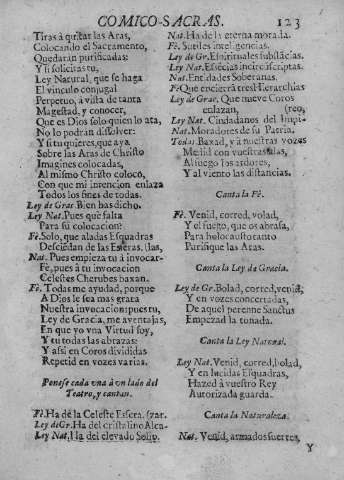 COMICO-SACRAS. 123
Tiras à quitar las Aras,
Colocando el Sacramento,
Quedaràn purificadas:
Y si solicitas tu,
Ley Natural, que se haga
El vinculo conjugal
Perpetuo, à vista de tanta
Magestad, y conocer,
Que es Dios solo quien lo ata,
No lo podràn dissolver:
Y si tu quieres, que aya
Sobre las Aras de Christo
Imagines colocadas,
Al mismo Christo colocò,
Con que mi intencion enlaza
Todos los fines de todas.
Ley de Grac. Bien has dicho.
Ley Nat. Pues què falta
Para su colocacion?
Fè. Solo, que aladas Esquadras
Desciendan de las Esferas. (las,
Nat. Pues empieza tu à invocar-
Fè, pues à tu invocacion
Celestes Cherubes baxan.
Fè. Todas me ayudad, porque
A Dios le sea mas grata
Nuestra invocacion: pues tu,
Ley de Gracia, me aventajas,
En que yo vna Virtud soy,
Y tu todas las abrazas:
Y assi en Coros divididas
Repetid en vozes varias.
Ponese cada una à un lado del
Teatro, y cantan.
Fè. Ha de la Celeste Esfera. (zar.
Ley de Gr. Ha del cristalino Alca-
Ley Nat. Ha del elevado Solio.
Nat. Ha de la eterna morada.
Fè. Sutiles inteligencias.
Ley de G. Espirituales substãcias.
Ley Nat. Essencias incircunscriptas.
Nat. Entidades Soberanas.
Fè. Que encierra tres Hierarchias
Ley de Grac. Que nueve Coros
enlazan, (reo,
Ley Nat. Ciudadanos del Impi-
Nat. Moradores de su Patria,
Todas. Baxad, y à nuestras vozes
Medid con vuestras alas,
Al fuego los ardores,
Y al viento las distancias.
Canta la Fè.
Fè. Venid, corred, volad,
Y el fuego, que os abrasa,
Para holocausto tanto
Purifique las Aras.
Canta la Ley de Gracia.
Ley de Gr. Bolad, corred, venid,
Y en vozes concertadas,
De aquel perenne Sanctus
Empezad la tonada.
Canta la Ley Natural.
Ley Nat. Venid, corred, bolad,
Y en lucidas Esquadras,
Hazed à vuestro Rey
Autorizada guarda.
Canta la Naturaleza.
Nat. Venid, armados fuertes,
Y